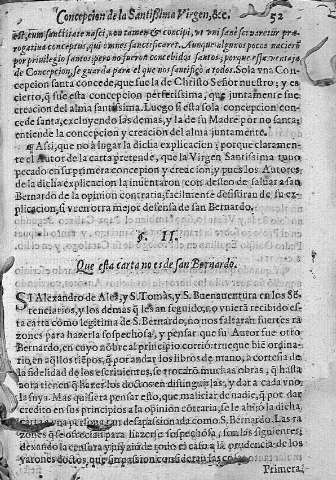 Concepcion de la Santissima Virgen, &c. 52
est, cum sanctitate nasci, non tamen & concipi, vt vni sanè seruaretur præ-
rogatiua conceptus, qui omnes sanctificaret. Aunque algunos pocos nacieron
por priuilegio santos: pero no fueron concebidos santos; porque essa ventaja
de Concepcion, se guarda para el que nos santifigò a todos. Sola vna Con-
cepcion santa concede, que fue la de Christo Señor nuestro; y es
cierto, q̃ fue esta concepcion perfetissima, que juntamente fue
creacion del alma santissima. Luego si esta sola concepcion con-
cede santa, excluyendo las demas, y la de su Madre por no santa;
entiende la concepcion y creacion del alma juntamente.
¶ Assi, que no à lugar la dicha explicacion; porque claramente
el Autor de la carta pretende, que la Virgen Santissima tuuo
pecado en su primera concepcion y creacion, y pues los Autores
de la dicha explicacion la inuentaron con desseo de saluar a san
Bernardo de la opinion contraria; facilmente desistiran de su ex-
plicacion, si vẽ otra mejor defensa de san Bernardo.
§. II.
Que esta carta no es de san Bernardo.
SI Alexandro de Ales, y S. Tomàs, y S. Buenauentura en los Sẽ-
tenciarios, y los demas q̃ les an seguido, no vuierã recibido es-
ta carta como legitima de S. Bernardo, no nos faltaràn fuertes ra
zones para hazerla sospechosa, y pensar que su Autor fue otro
Bernardo, en cuyo nõbre al principio corriò: trueque biẽ ordina-
rio, en aq̃llos tiẽpos, q̃ por andar los libros de mano, à cortesia de
la fidelidad de los escriuientes, se trocarõ muchas obras, q̃ hasta
aora tienen q̃ hazer los doctos en distinguirlas, y dar a cada vno
la suya. Mas quisiera pensar esto, que maliciar de nadie, q̃ por dar
credito en sus principios a la opiniõn cõtraria, se le aya la dicha
carta a vna persona tan desapassionada como S. Bernardo. Las ra
zones que se ofrecian para hazerse sospechosa, son las siguientes;
dexando la censura y juyzio de todo el caso a la prudencia de los
varones doctos, que sin passion consideraràn las cosas.
Primera,